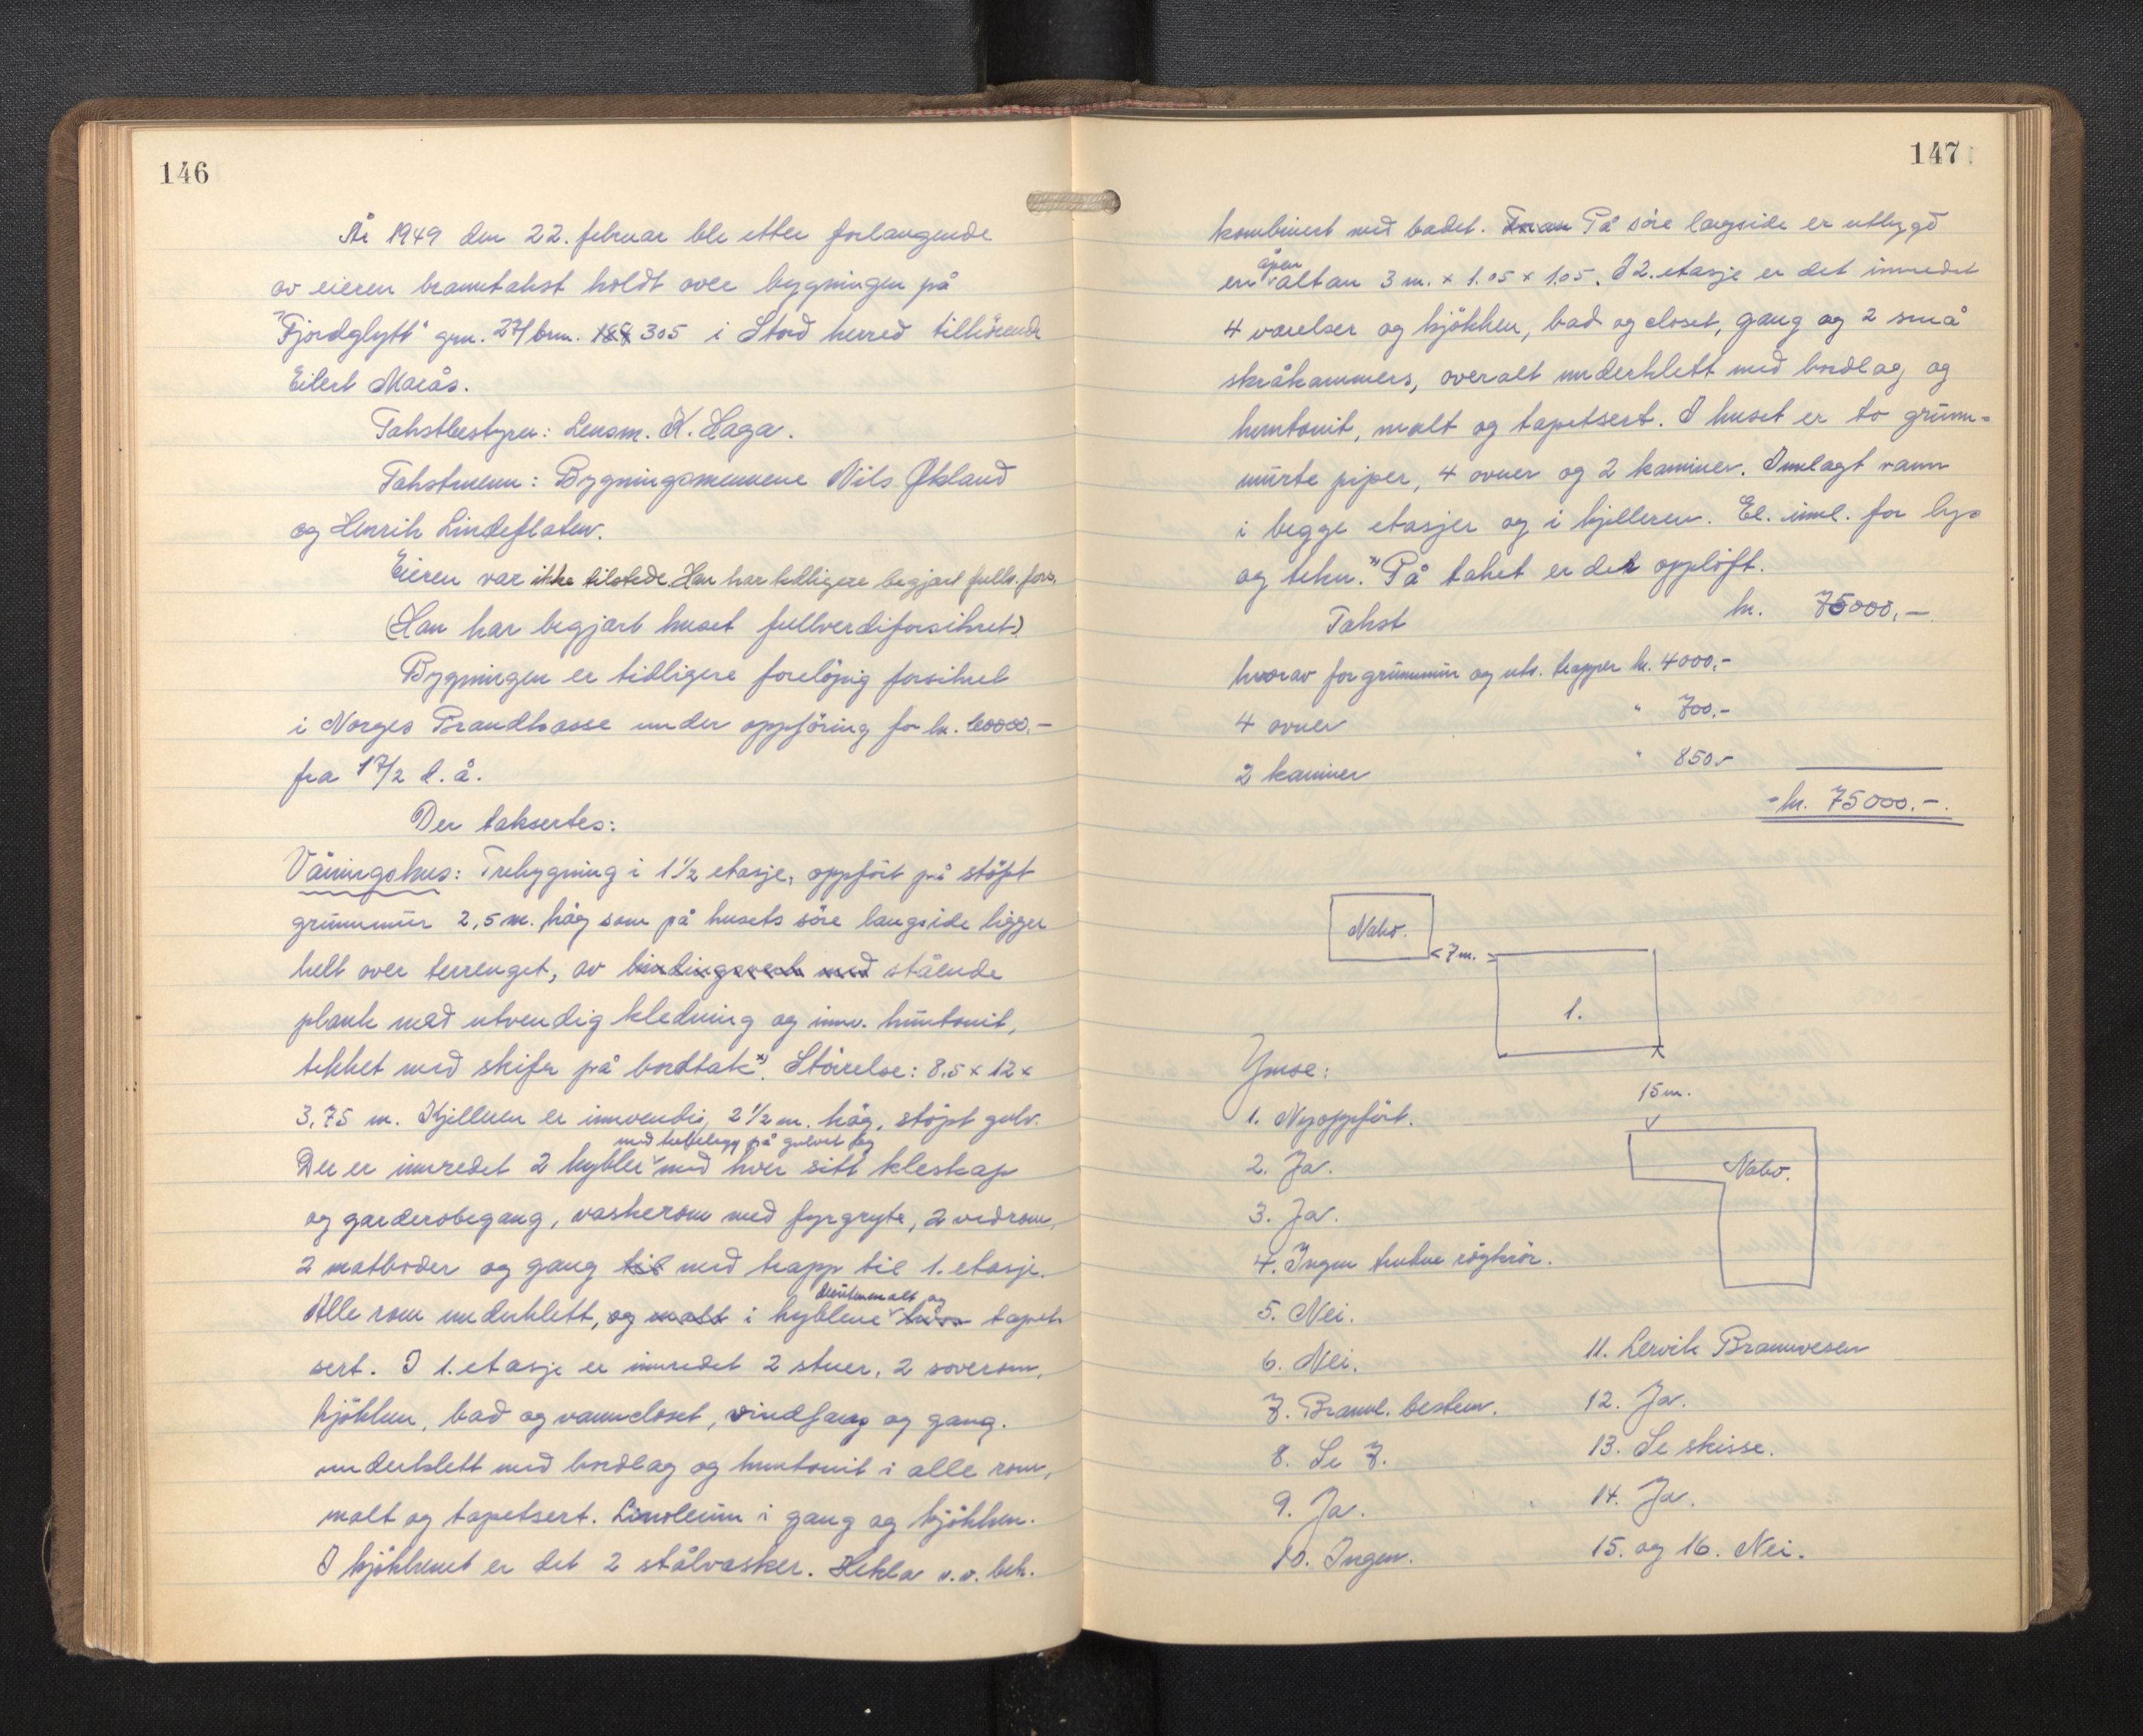 146
År 1949 den 22. februar ble etter forlangende
av eieren branntakst holdt over bygningen på
"Fjordglytt" gnr. 27/ bnr. 305 i Stord herred tilhörende
Eilert Marås.
Takstbestyrer: Lensm. K. Haga.
Takstmenn: Bygningsmennene Nils Økland
og Henrik Lindeflaten.
Eieren var ikke tilstede. Han har tidligere begjært fullv. fors.
(Han har begjært huset fullverdiforsikret)
Bygningen er tidligere foreløpig forsikret
i Norges Brandkasse under oppföring for kr. 60000,-
fra 17/2 d. å.
Der taksertes:
Våningshus: Trebygning i 1 1/2 etasje, oppfört på stöpt
grunnmur 2,5 m. håg som på husets söre langside ligger
helt over terrenget, av bindingsverk med stående
plank med utvendig kledning og innv. huntonit,
tekket med skifer på bordtak x). Störrelse: 8,5 x 12 x
3,75 m. Kjelleren er innvendig 2 1/2 m. håg, støpt golv.
med på golvet og
Der er innredet 2 hybler med hver sitt kleskap
og garderobegang, vaskerom med fyrgryte, 2 vedrom,
2 matboder og gang til med trapp til 1. etasje.
og
Alle rom underklett, og malt i hyblene tapet-
sert. I 1. etasje er innredet 2 stuer, 2 soverom,
kjökken, bad og vanncloset, vindfang og gang.
underklett med bordlag og huntonit i alle rom,
malt og tapetsert. Linoleum i gang og kjökken.
I kjökkenet er det 2 stålvasker. Hekla v.v. beh.
147
kombinert med badet. På söre langside er utbygd
åpen
en altan 3 m. x 1.05 x 1.05. I 2. etasje er det innredet
4 værelser og kjökken, bad og closet, gang og 2 små
skråkammers, overalt underklett med bordlag og
huntonit, malt og tapetsert. I huset er to grunn-
murte piper, 4 ovner og 2 kaminer. Innlagt vann
i begge etasjer og i kjelleren. El. innl. for lys
og tekn. x) På taket er det opplöft.
Takst kr. 75000,-
hvorav for grunnmur og utv. trapper kr. 4000,-
4 ovner " 700,-
2 kaminer " 850,-
- kr. 75000.-.
Nabo.
< 7 m. >
1.
15 m.
Nabo.
Ymse:
1. Nyoppfört.
2. Ja.
3. Ja.
4. Ingen trekne röykrör.
5. Nei.
6. Nei.
7. Brannl. bestem.
8. Se 7.
9. Ja.
10. Ingen.
11. Lervik Brannvesen
12. Ja.
13. Se skisse.
14. Ja.
15. og 16. Nei.